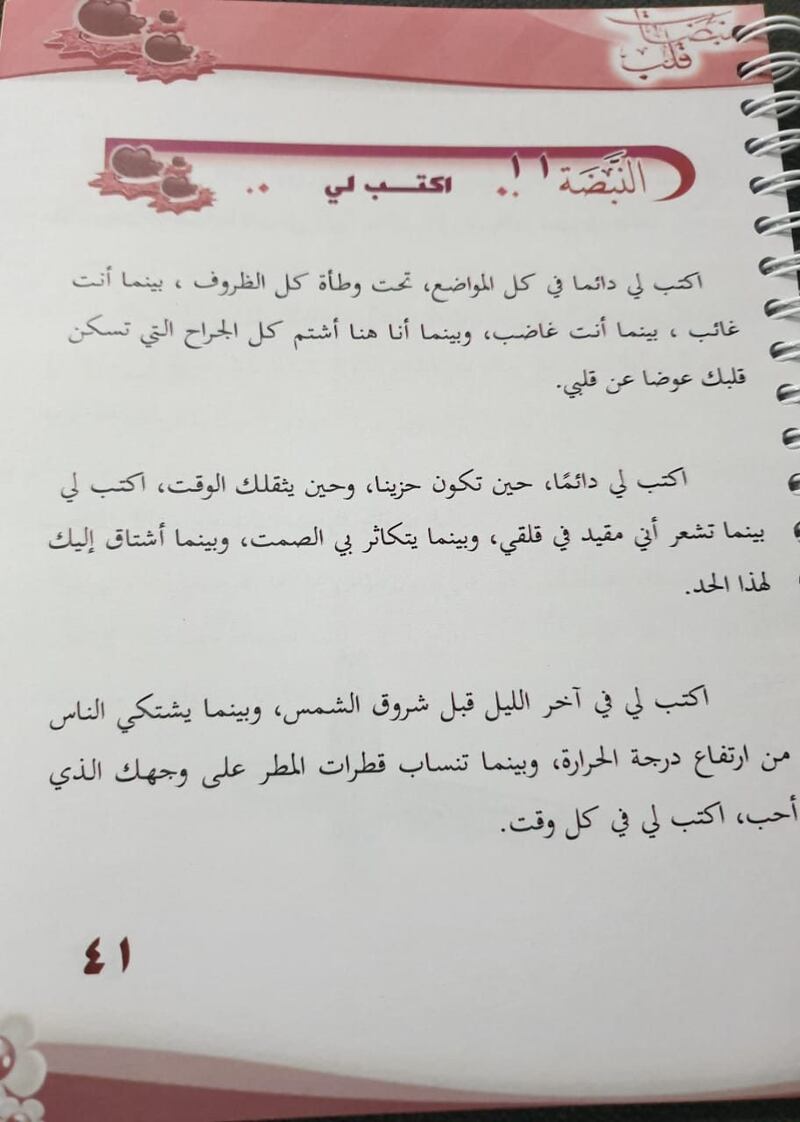 نبضات
قلب
النَّبْضَة ١١ .. اكتـــب لي ..
اكتب لي دائما في كل المواضع، تحت وطأة كل الظروف ، بينما أنت
غائب ، بينما أنت غاضب، وبينما أنا هنا أشتم كل الجراح التي تسكن
قلبك عوضا عن قلبي.
اكتب لي دائمًا، حين تكون حزينا، وحين يثقلك الوقت، اكتب لي
بينما تشعر أني مقيد في قلقي، وبينما يتكاثر بي الصمت، وبينما أشتاق إليك
لهذا الحد.
اكتب لي في آخر الليل قبل شروق الشمس، وبينما يشتكي الناس
من ارتفاع درجة الحرارة، وبينما تنساب قطرات المطر على وجهك الذي
أحب، اكتب لي في كل وقت.
٤١